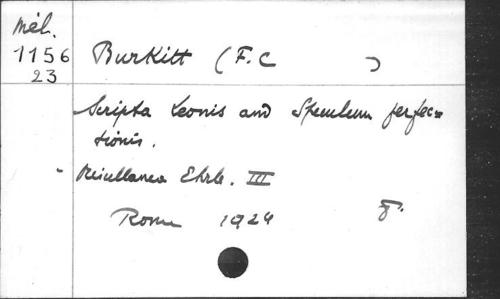 Mél.
1156
23
Burkitt (F. C )
Scripta Leonis and Speculum perfec=
tionis.
- Miscellanea Ehrle. III
Rome 1924